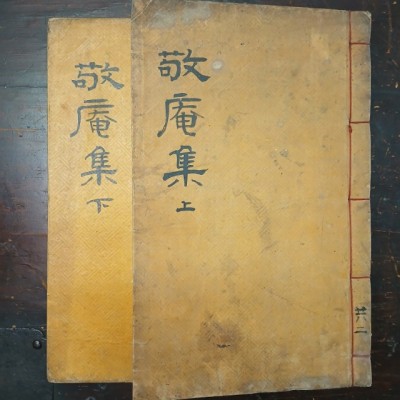 敬庵集
上
共二
敬庵集
下